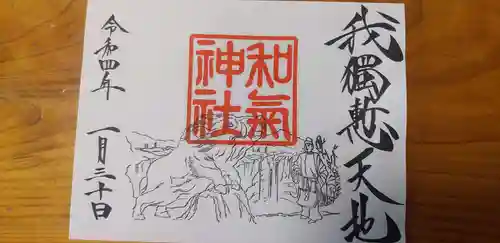 我獨慙天地
和氣
神社
令和四年 一月三十日